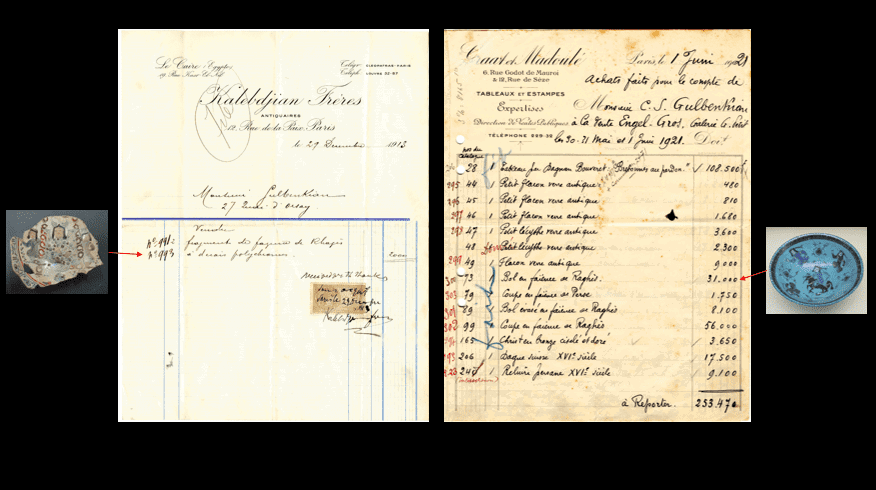 Le Caire (Egypte)
Télégr. CLEOPATRAS-PARIS
Téléph. LOUVRE 32-57
Kalebdjian Frères
ANTIQUAIRES
12, Rue de la Paix, Paris
le 29 Decembre 1913
Monsieur Gulbenkian
27 Quai d'Orsay
Vendu
fragment de fayence de Rhagès
à dessin polychrome.
Graat et Madoulé
Paris, le 1 Juin 1921
6, Rue Godot de Mauroi
& 12, Rue de Sèze
Achats faits pour le compte de
TABLEAUX ET ESTAMPES
Monsieur C. S. Gulbenkian
Expertises
à la Vente Engel-Gros, Galerie G. Petit
Direction de Ventes Publiques
TÉLÉPHONE
les 30-31 Mai et 1 Juin 1921. Doit
28 1 Tableau par Dagnan Bouveret "Bretonnes au pardon" 108.500
295 44 1 Petit flacon verre antique 480
296 45 1 Petit flacon verre antique 810
297 46 1 Petit flacon verre antique 1.680
298 47 1 Petit lécythe verre antique 3.600
48 1 Petit lécythe verre antique 2.300
299 49 1 Flacon verre antique 9.000
300 73 1 Bol en faïence de Raghès. 31.000
303 79 1 Coupe en faïence de Perse 1.750
301 89 1 Bol creux en faïence de Raghès 8.100
302 99 1 Coupe en faïence de Raghès 56.000
165 1 Christ en bronze ciselé et doré 3.650
206 1 Dague suisse XVIe siècle 17.500
1 Reliure persane XVIe siècle 9.100
à Reporter. 253.470